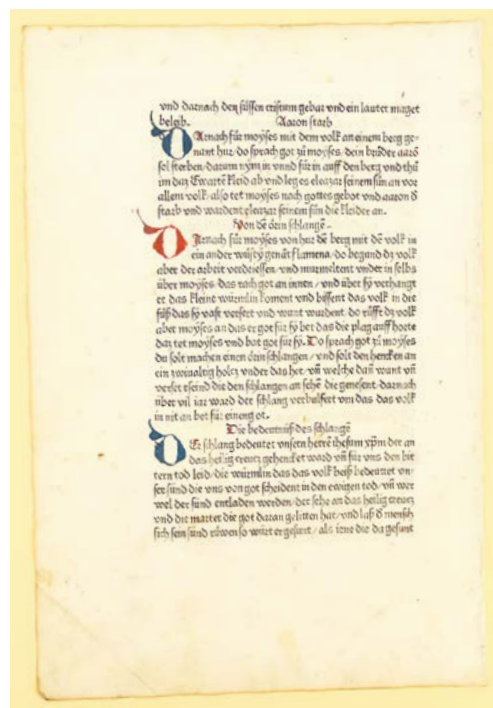 vnd darnach den süssen cristum gebar vnd ein lauter maget
beleib. Aaron starb
DArnach für moyses mit dem volk an einem berg ge-
nant hur/do sprach got zů moyses/dein brůder aarō
sol sterben/darum nym in vnnd für in auff den berg vnd thů
im daz Ewartē kleid ab vnd leg es eleazar seinem sun an vor
allem volk/also tet moyses nach gottes gebot vnd aaron d̄
starb vnd wardent eleazar seinem sün die kleider an.
Von dē örin schlangē
DArnach für moyses von hur dē berg mit dē volk in
ein ander wůsty genāt flamena/do begund dz volk
aber der arbeit verdriessen/vnd murmeltent vnder in selbs
über moyses/das rach got an innen/vnd über sy verhangt
er das kleine würmlin koment vnd bissent das volk in die
füß das sy vast versert vnd wunt wardent. do rüfft dz volk
aber moyses an das er got für sy bet das die plag auff horte
daz tet moyses vnd bat got für sy. Do sprach got zů moyses
du solt machen einen örin schlangen/vnd solt den hencken an
ein zwiualtig holtz vnder das her/vn̄ welche dan̄ wunt vn̄
versert seind die den schlangen an sehē die genesent. darnach
über vil iar ward der schlang verbulfert vm das das volk
in nit an bet für einen got.
Die bedeutnüß des schlangē
DEr schlang bedeutet vnsern herrē ihesum xp̄m der an
das heilig creutz gehencket ward vn̄ für vns den bit
tern tod leid/die würmlin das das volk beiß bedeuttet vn-
ser sünd die vns von got scheident in den ewigen tod/vn̄ wer
wel der sünd entladen werden/der sehe an das heilig creutz
vnd die marter die got daran gelitten hat/vnd laß d̄ mensch
sich sein sünd rüwen so würt er gesunt/als iene die da gesunt